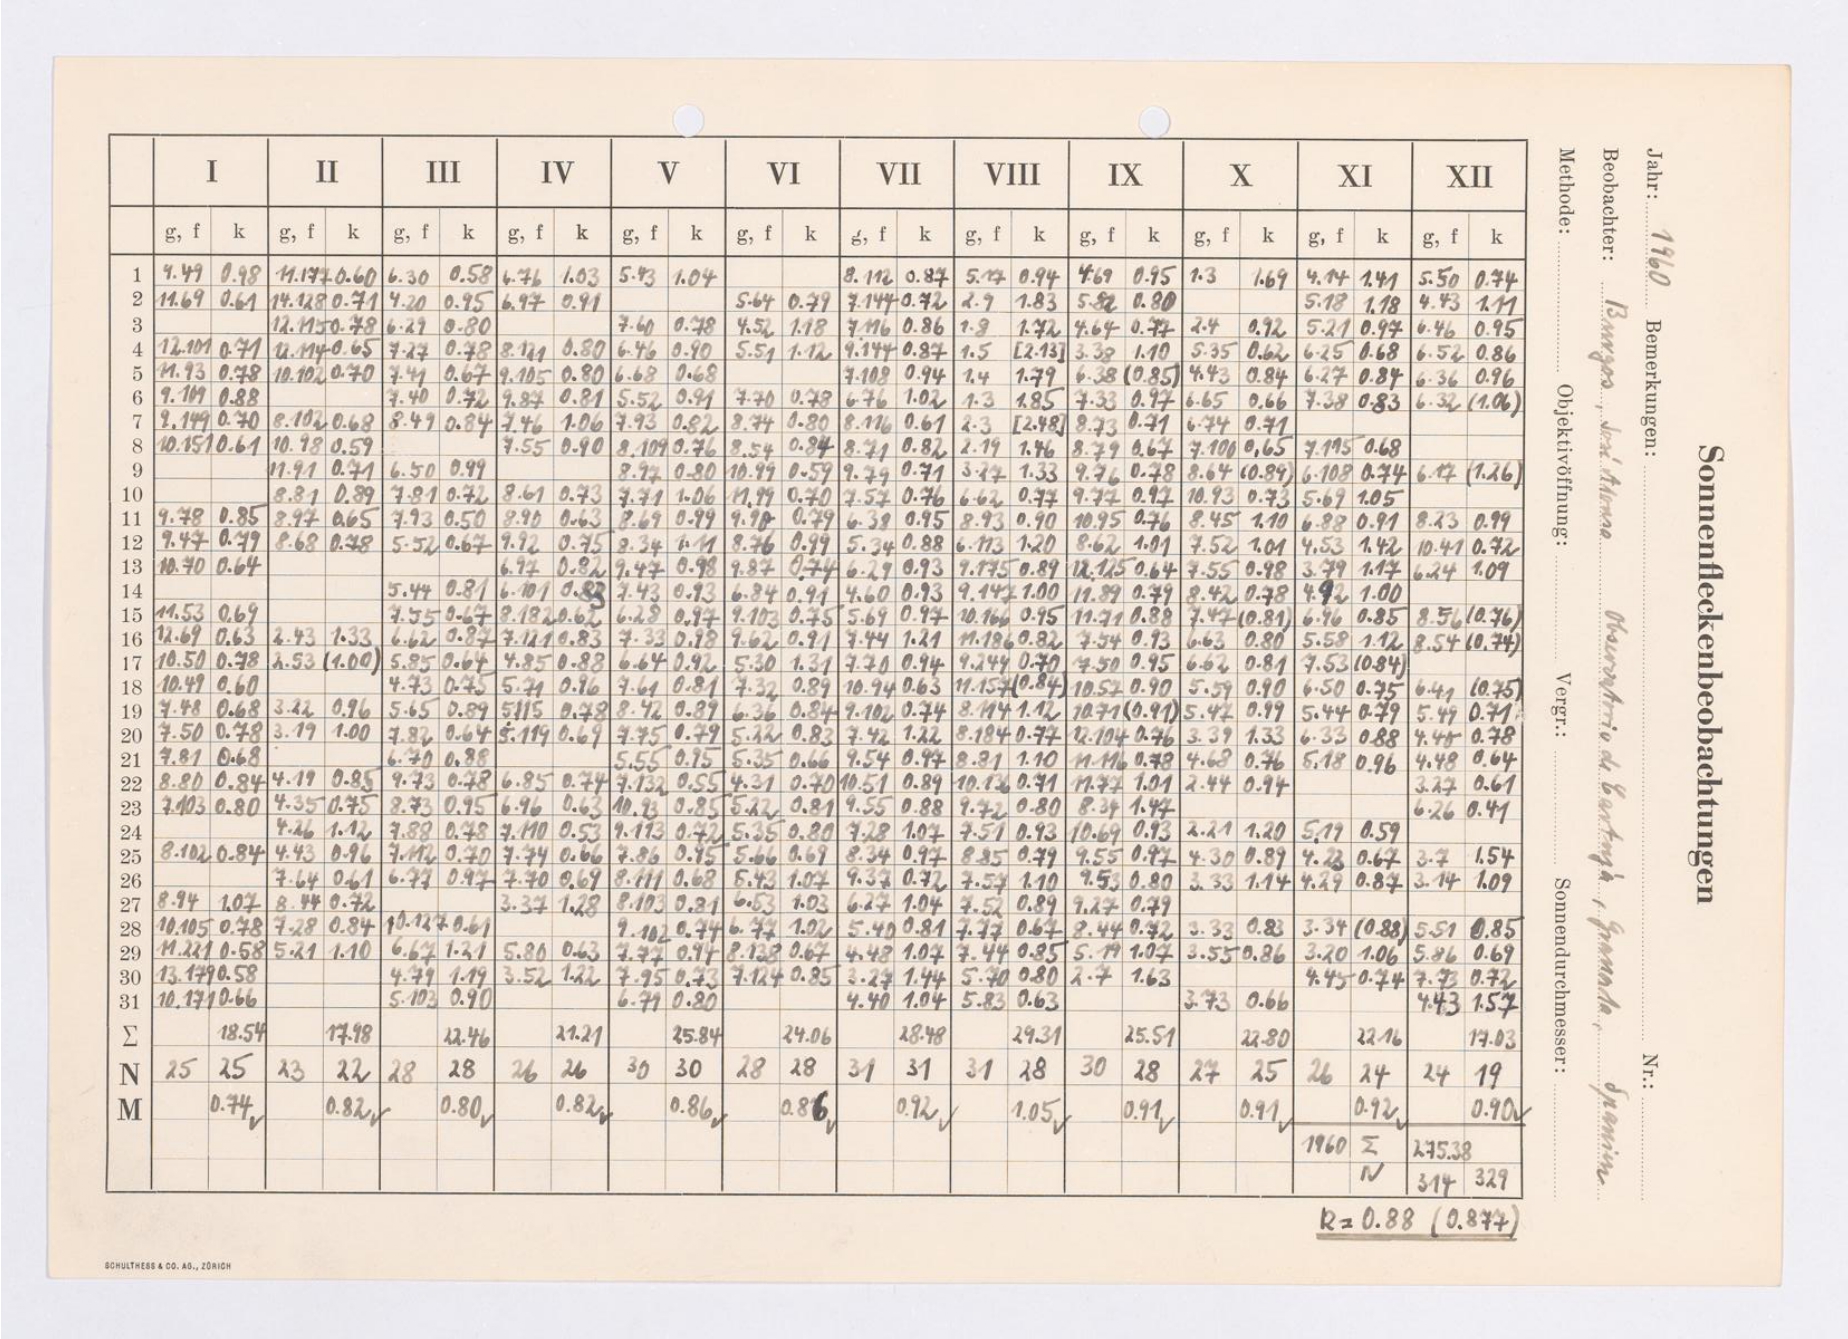 Sonnenfleckenbeobachtungen
Jahr: 1960 Bemerkungen: Nr.:
Beobachter: Burgos, José Alonso Observatorio de Cartuja, Granada, Spanien
Methode: Objektivöffnung: Vergr.: Sonnendurchmesser:
I II III IV V VI VII VIII IX X XI XII
g, f k g, f k g, f k g, f k g, f k g, f k g, f k g, f k g, f k g, f k g, f k g, f k
1 4.49 0.98 11.177 0.60 6.30 0.58 6.76 1.03 5.43 1.04 8.112 0.87 5.17 0.94 4.69 0.95 1.3 1.69 4.14 1.41 5.50 0.74
2 11.69 0.61 14.128 0.71 4.20 0.95 6.97 0.91 5.64 0.79 7.144 0.72 2.9 1.83 5.82 0.80 5.18 1.18 4.43 1.11
3 12.115 0.78 6.29 0.80 7.60 0.78 4.52 1.18 7.116 0.86 1.8 1.72 4.64 0.77 2.4 0.92 5.21 0.97 6.46 0.95
4 12.101 0.71 12.114 0.65 7.27 0.78 8.121 0.80 6.46 0.90 5.51 1.12 9.144 0.87 1.5 [2.13] 3.38 1.10 5.35 0.62 6.25 0.68 6.52 0.86
5 11.93 0.78 10.102 0.70 7.41 0.67 9.105 0.80 6.68 0.68 7.108 0.94 1.4 1.79 6.38 (0.85) 4.43 0.84 6.27 0.84 6.36 0.96
6 9.109 0.88 7.40 0.72 9.87 0.81 5.52 0.91 7.70 0.78 6.76 1.02 1.3 1.85 7.33 0.97 6.65 0.66 7.38 0.83 6.32 (1.06)
7 9.149 0.70 8.102 0.68 8.49 0.84 7.46 1.06 7.93 0.82 8.74 0.80 8.116 0.61 2.3 [2.48] 8.73 0.71 6.74 0.71
8 10.151 0.61 10.98 0.59 7.55 0.90 8.109 0.76 8.54 0.84 8.71 0.82 2.19 1.46 8.79 0.67 7.100 0,65 7.115 0.68
9 11.91 0.71 6.50 0.99 8.97 0.80 10.99 0.59 9.79 0.71 3.27 1.33 9.76 0.78 8.64 (0.89) 6.108 0.74 6.17 (1.26)
10 8.81 0.89 7.81 0.72 8.61 0.73 7.71 1.06 11.99 0.70 7.57 0.76 6.62 0.77 9.77 0.97 10.93 0.73 5.69 1.05
11 9.78 0.85 8.97 0.65 7.93 0.50 8.90 0.63 8.69 0.99 0.79 6.38 0.95 8.93 0.90 10.95 0.76 8.45 1.10 6.88 0.91 8.23 0.99
12 9.47 0.79 8.68 0.78 5.52 0.67 9.92 0.75 8.34 1.11 8.76 0.99 5.34 0.88 6.113 1.20 8.62 1.01 7.52 1.01 4.53 1.42 10.41 0.72
13 10.70 0.64 6.97 0.82 9.47 0.98 9.87 0.74 6.29 0.93 9.175 0.89 12.125 0.64 7.55 0.98 3.79 1.17 6.24 1.09
14 5.44 0.81 6.101 0.83 7.43 0.93 6.84 0.91 4.60 0.93 9.147 1.00 11.89 0.79 8.42 0.78 4.92 1.00
15 11.53 0.69 7.55 0.67 8.182 0.62 6.28 0.97 9.103 0.75 5.69 0.97 10.166 0.95 11.71 0.88 7.47 (0.81) 6.96 0.85 8.56 (0.76)
16 12.69 0.63 2.43 1.33 6.62 0.87 7.121 0.83 7.33 0.98 9.62 0.91 7.44 1.21 11.186 0.82 7.54 0.93 6.63 0.80 5.58 1.12 8.54 (0.74)
17 10.50 0.78 2.53 (1.00) 5.85 0.64 4.85 0.88 6.64 0.92 5.30 1.31 7.70 0.94 9.249 0.70 7.50 0.95 6.62 0.81 7.53 (0.84)
18 10.49 0.60 4.73 0.75 5.71 0.96 7.61 0.81 7.32 0.89 10.94 0.63 11.157 (0.84) 10.57 0.90 5.59 0.90 6.50 0.75 6.41 (0.75)
19 7.48 0.68 3.22 0.96 5.65 0.89 5.115 0.78 8.42 0.89 6.36 0.84 9.102 0.74 8.114 1.12 10.71 (0.91) 5.47 0.99 5.44 0.79 5.49 0.71
20 7.50 0.78 3.19 1.00 7.82 0.64 5.119 0.69 7.75 0.79 5.22 0.83 7.42 1.22 8.184 0.77 12.104 0.76 3.39 1.33 6.33 0.88 4.40 0.78
21 7.81 0.68 6.70 0.88 5.55 0.95 5.35 0.66 9.54 0.97 8.81 1.10 11.116 0.78 4.68 0.76 5.18 0.96 4.48 0.64
22 8.80 0.84 4.19 0.85 9.73 0.78 6.85 0.74 7.132 0.55 4.31 0.70 10.51 0.89 10.136 0.71 11.77 1.01 2.44 0.94 3.27 0.61
23 7.103 0.80 4.35 0.75 8.73 0.95 6.96 0.63 10.93 0.85 5.22 0.81 9.55 0.88 9.72 0.80 8.34 1.47 6.26 0.41
24 4.26 1.12 7.88 0.78 7.110 0.53 9.113 0.72 5.35 0.80 7.28 1.07 7.51 0.93 10.69 0.93 2.21 1.20 5.19 0.59
25 8.102 0.84 4.43 0.96 7.112 0.70 7.74 0.66 7.86 0.95 5.66 0.69 8.34 0.97 8.85 0.79 9.55 0.97 4.30 0.89 4.23 0.67 3.7 1.54
26 7.64 0.61 6.77 0.97 7.70 0.69 8.111 0.68 5.43 1.07 9.37 0.72 7.57 1.10 9.53 0.80 3.33 1.14 4.29 0.87 3.14 1.09
27 8.94 1.07 8.44 0.72 3.37 1.28 8.103 0.81 6.53 1.03 6.27 1.04 7.52 0.89 9.27 0.79
28 10.105 0.78 7.28 0.84 10.127 0.61 9.102 0.74 6.77 1.02 5.40 0.81 7.77 0.67 8.44 0.72 3.33 0.83 3.34 (0.88) 5.51 0.85
29 11.221 0.58 5.21 1.10 6.67 1.21 5.80 0.63 7.77 0.94 8.138 0.67 4.48 1.07 7.44 0.85 5.19 1.07 3.55 0.86 3.20 1.06 5.86 0.69
30 13.179 0.58 4.79 1.19 3.52 1.22 7.95 0.73 7.124 0.85 3.27 1.44 5.70 0.80 2.7 1.63 4.45 0.74 7.73 0.72
31 10.171 0.66 5.103 0.90 6.79 0.80 4.40 1.04 5.83 0.63 3.73 0.66 4.43 1.57
Σ 18.54 17.98 22.46 21.21 25.84 24.06 28.48 29.31 25.51 22.80 22.16 17.03
N 25 25 23 22 28 28 26 26 30 30 28 28 31 31 31 28 30 28 27 25 26 24 24 19
M 0.74 0.82 0.80 0.82 0.86 0.86 0.92 1.05 0.91 0.91 0.92 0.90
1960 Σ 275.38
N 314 329
k = 0.88 (0.877)
SCHULTHESS & CO. AG., ZÜRICH